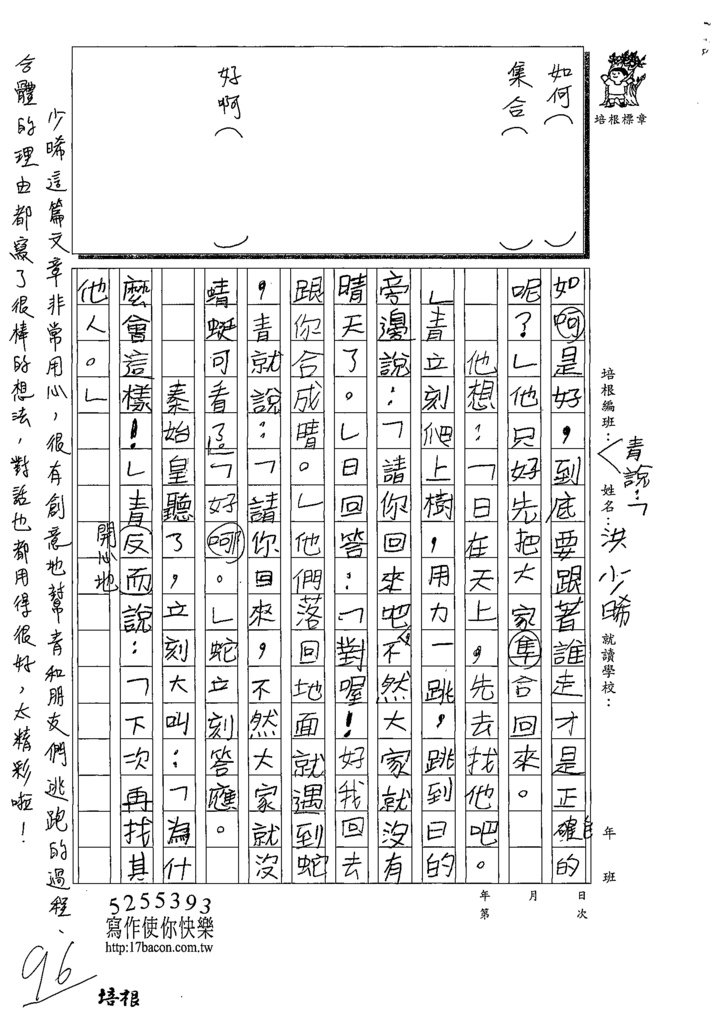 如何（　）
集合（　）
好啊（　）
培根標章
青說：「
培根編班：　姓名：洪少晞　就讀學校：　年　班
如呵是好，到底要跟著誰走才是正確的
呢？」他只好先把大家隼合回來。
他想：「日在天上，先去找他吧。
」青立刻爬上樹，用力一跳，跳到日的
旁邊說：「請你回來吧，不然大家就沒有
晴天了。」日回答：「對喔！好我回去
跟你合成晴。」他們落回地面就遇到蛇
，青就說：「請你回來，不然大家就沒
蜻蜓可看了。「好呵。」蛇立刻答應。
秦始皇聽了，立刻大叫：「為什
麼會這樣！」青反而說：「下次再找其
開心地
他人。」
少晞這篇文章非常用心，很有創意地幫青和朋友們逃跑的過程、
合體的理由都寫了很棒的想法，對話也都用得很好，太精彩啦！
96
年　月　日
第　次
5255393
寫作使你快樂
http:17bacon.com.tw
培根